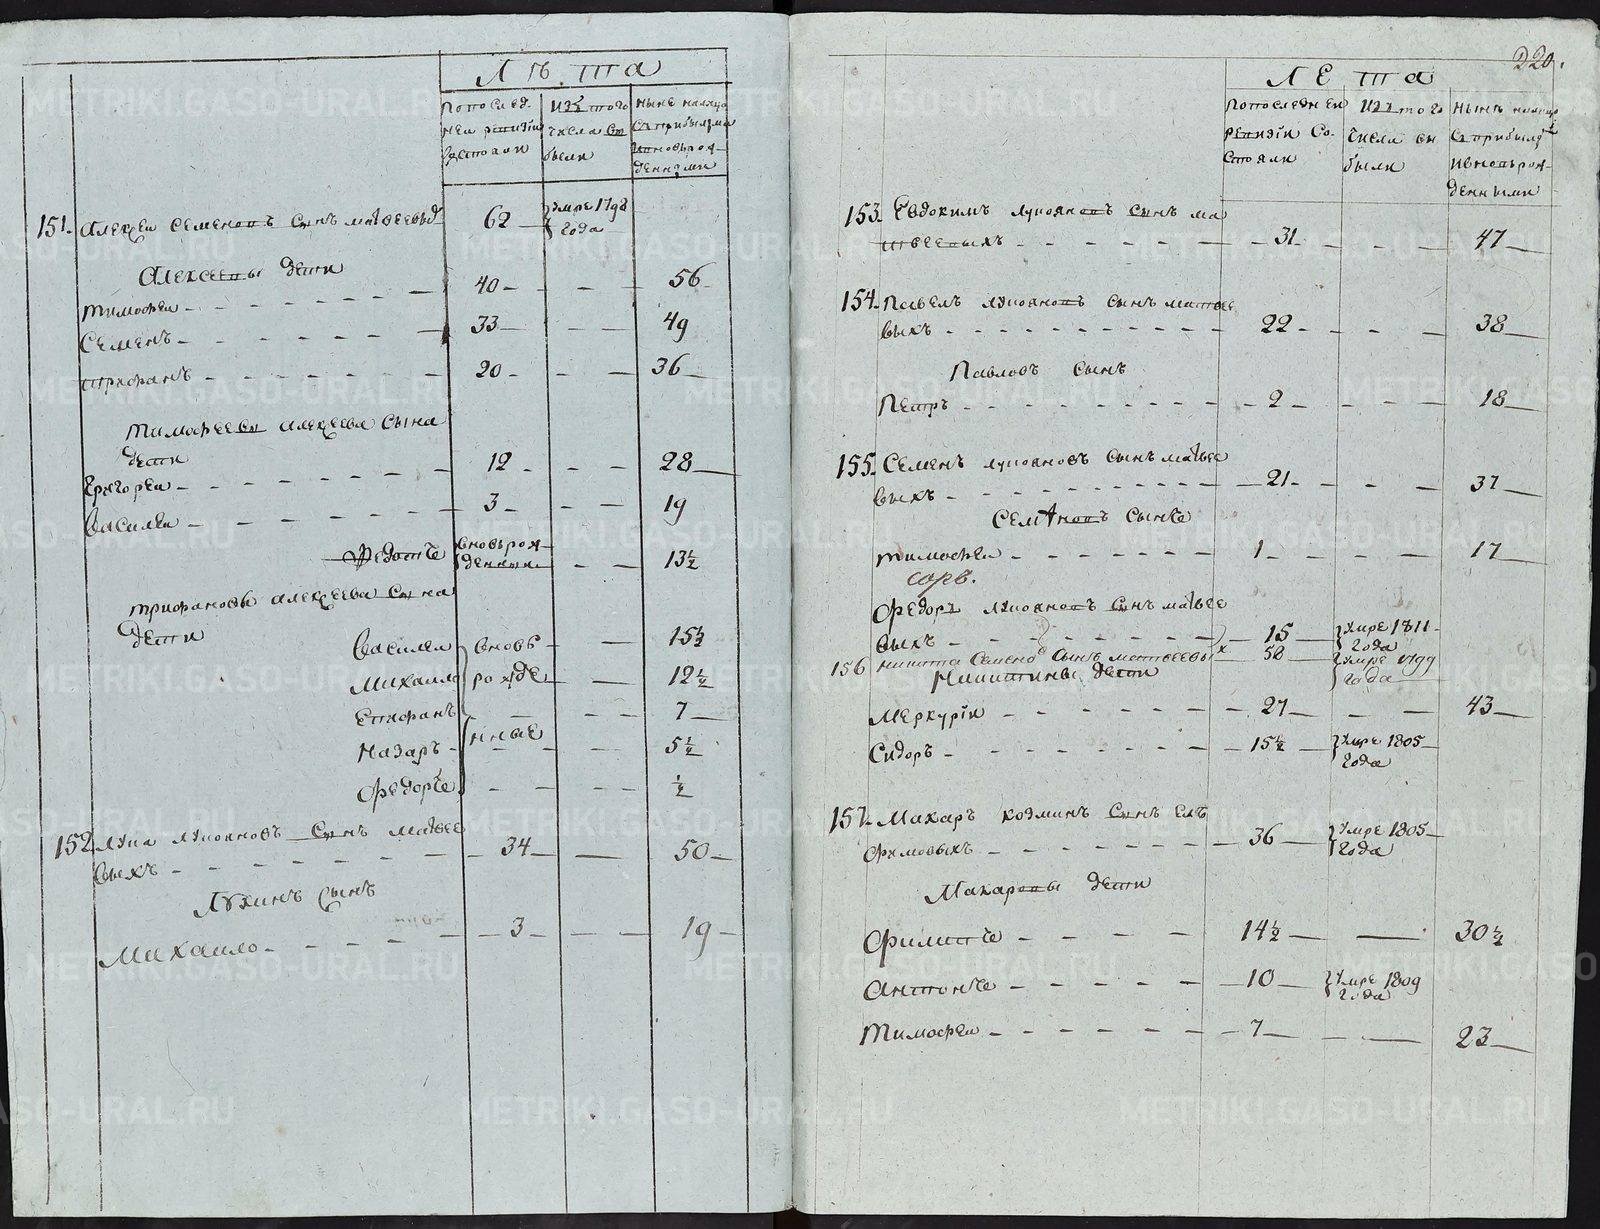 Лѣта
Попослед-
ней ревизіи
Состояли
Изъ того
числа вы
были
Ныне налицо
Съ прибылыми
И вновь рож-
денными
151. Алексеи Семеновъ Сынъ матвеевых
62
Умре 1798
Года
Алексеевы дети
Тимофеи
40
56
Семенъ
33
49
Трифанъ
20
36
Тимофеевы алексеева Сына
дети
Григореи
12
28
Василеи
3
19
Федотъ
вновь рож-
денныи
13½
Трифановы алексеева Сына
дети
Василеи
вновь
15½
Михаило
рожде
12½
Епифанъ
7
Назаръ
нные
5½
Федоръ
½
152. Лупа лупановъ Сынъ матвее
выхъ
34
50
Лупинъ Сынъ
Михаило
3
19
220.
Лета
Попоследнеи
ревизіи Со-
стояли
Изъ того
числа вы
были
Нынѣ налицо
Съ прибылы
И вновь рож-
денными
153. Евдокимъ лупановъ Сынъ ма
твеевыхъ
31
47
154. Павелъ лупановъ Сынъ матвее
выхъ
22
38
Павловъ Сынъ
Петръ
2
18
155. Семенъ лупановъ Сынъ матвее
выхъ
21
37
Семеновъ Сынъ
Тимофеи
1
17
Федоръ лупановъ Сынъ матвее
выхъ
15
Умре 1811
Года
156 Никита Семеновъ Сынъ матвеевы х
58
Умре 1799
Года
Никитины дети
Меркуріи
27
43
Сидоръ
15½
Умре 1805
Года
157. Макаръ козминъ Сынъ Ев
фимовыхъ
36
Умре 1805
Года
Макаровы дети
Филипъ
14½
30½
Антонъ
10
Умре 1809
Года
Тимофеи
7
23
METRIKI.GASO-URAL.RU